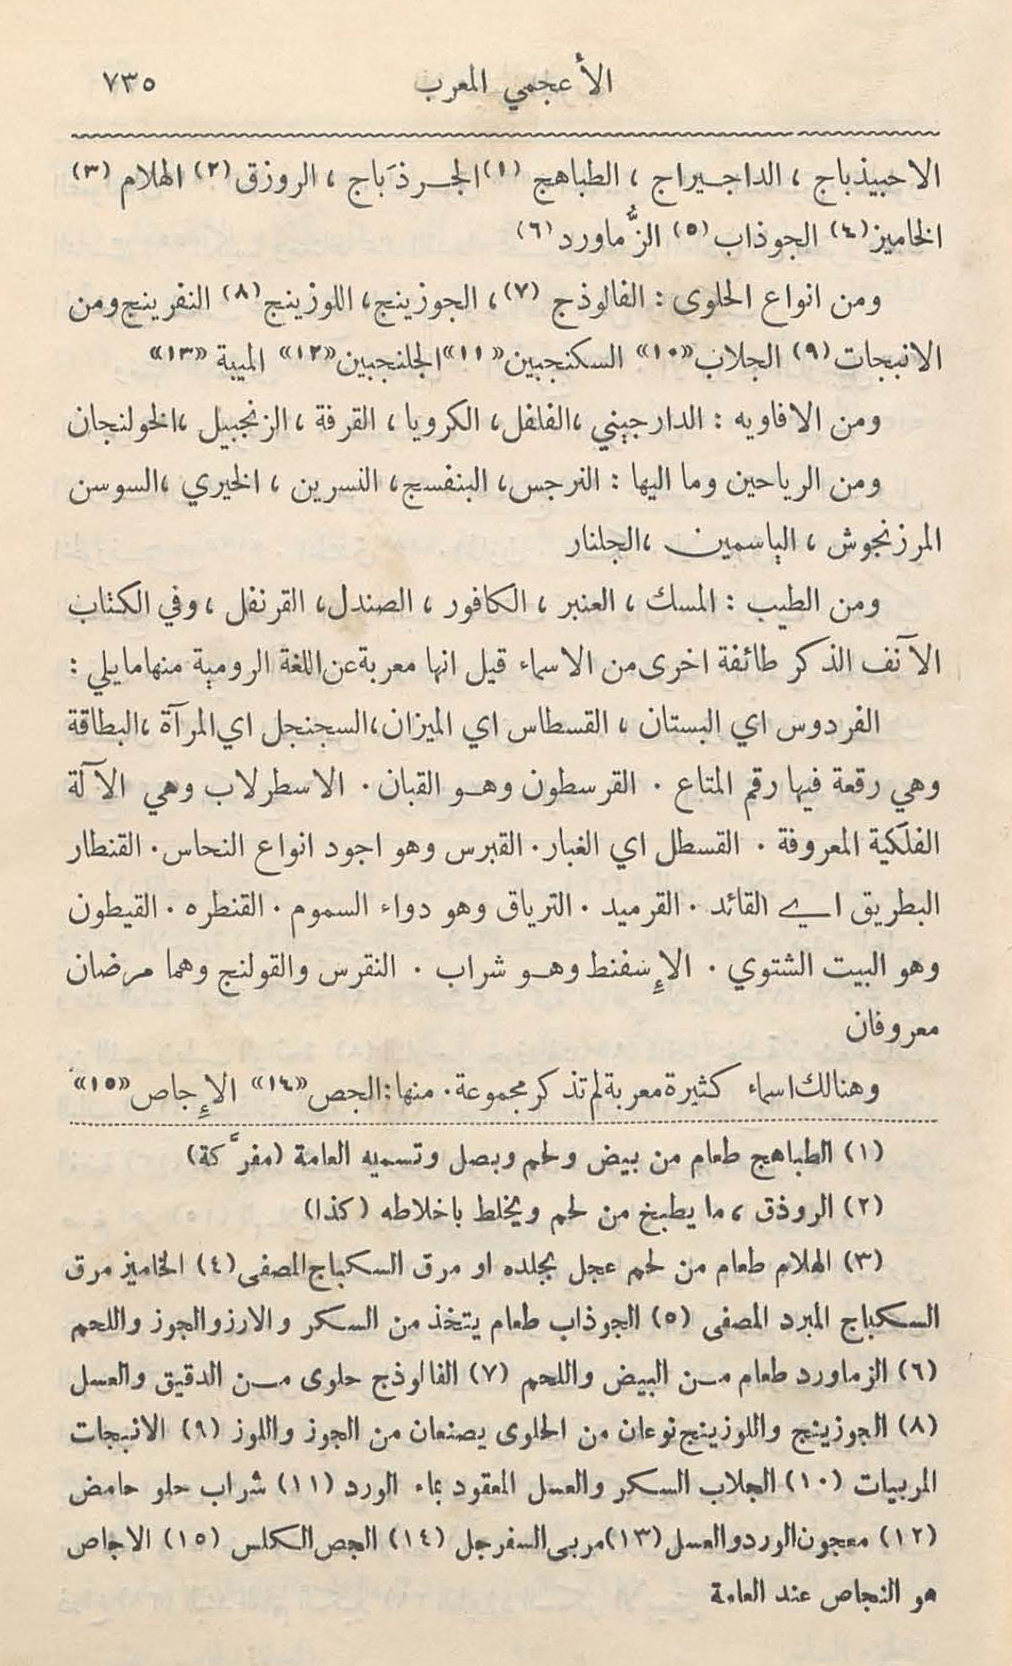 الأعجمي المعرب ٧٣٥
الاحبيذباج ، الداجيراج ، الطباهج (١) الجرذَباج ، الروزق (٢) الهلام (٣)
الخاميز (٤) الجوذاب (٥) الزُّماورد (٦)
ومن انواع الحلوى : الفالوذج (٧) ، الجوزينج، اللوزينج (٨) النفرينج ومن
الانبجات (٩) الجلاب «١٠» السكنجبين «١١» الجلنجبين «١٢» الميبة «١٣»
ومن الافاويه : الدارجيني ،الفلفل، الكرويا ، القرفة ، الزنجبيل ،الخولنجان
ومن الرياحين وما اليها : النرجس، البنفسج، النسرين ، الخيري ،السوسن
المرزنجوش ، الياسمين ،الجلنار
ومن الطيب : المسك ، العنبر ، الكافور ، الصندل، القرنفل ، وفي الكتاب
الآنف الذكر طائفة اخرى من الاسماء قيل انها معربة عن اللغة الرومية منها مايلي :
الفردوس اي البستان ، القسطاس اي الميزان،السجنجل اي المرآة ،البطاقة
وهي رقعة فيها رقم المتاع . القرسطون وهو القبان . الاسطرلاب وهي الآلة
الفلكية المعروفة . القسطل اي الغبار . القبرس وهو اجود انواع النحاس . القنطار
البطريق اي القائد . القرميد . الترياق وهو دواء السموم . القنطره . القيطون
وهو البيت الشتوي . الإسفنط وهو شراب . النقرس والقولنج وهما مرضان
معروفان
وهنالك اسماء كثيرة معربة لم تذكر مجموعة . منها : الجص «١٤» الإجاص «١٥»
(١) الطباهج طعام من بيض ولحم وبصل وتسميه العامة (مفرَّكة)
(٢) الروذق ، ما يطبخ من لحم ويخلط باخلاطه (كذا)
(٣) الهلام طعام من لحم عجل بجلده او مرق السكباج المصفى (٤) الخاميز مرق
السكباج المبرد المصفى (٥) الجوذاب طعام يتخذ من السكر والارز والجوز واللحم
(٦) الزماورد طعام من البيض واللحم (٧) الفالوذج حلوى من الدقيق والعسل
(٨) الجوزينج واللوزينج نوعان من الحلوى يصنعان من الجوز واللوز (٩) الانبجات
المربيات (١٠) الجلاب السكر والعسل المعقود بماء الورد (١١) شراب حلو حامض
(١٢) معجون الورد والعسل (١٣) مربى السفرجل (١٤) الجص الكلس (١٥) الاجاص
هو النجاص عند العامة